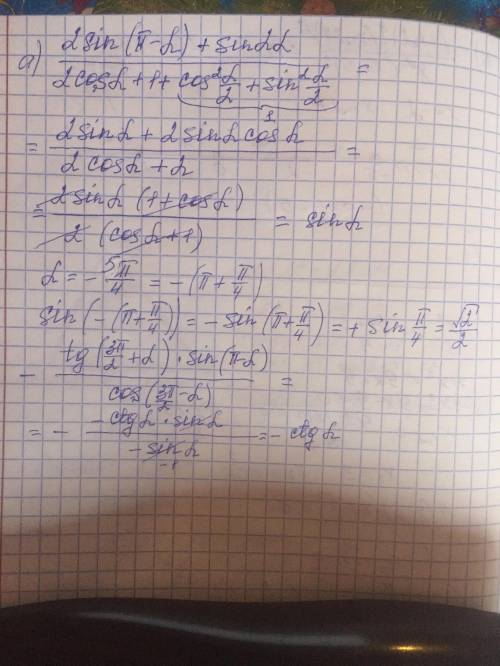 а) (2sin(π-α) + sin2α) / (2cosα + 1 + cos²α/2 + sin²α/2) =
1
= (2sinα + 2sinα cosα) / (2cosα + 2) =
= (2sinα (1+cosα)) / (2 (cosα+1)) = sinα
α = -5π/4 = -(π + π/4)
sin(-(π+π/4)) = -sin(π+π/4) = + sin π/4 = √2/2
- (tg(3π/2 + α) · sin(π-α)) / cos(3π/2 - α) =
= - (-ctgα · sinα) / (-sinα) = - ctgα